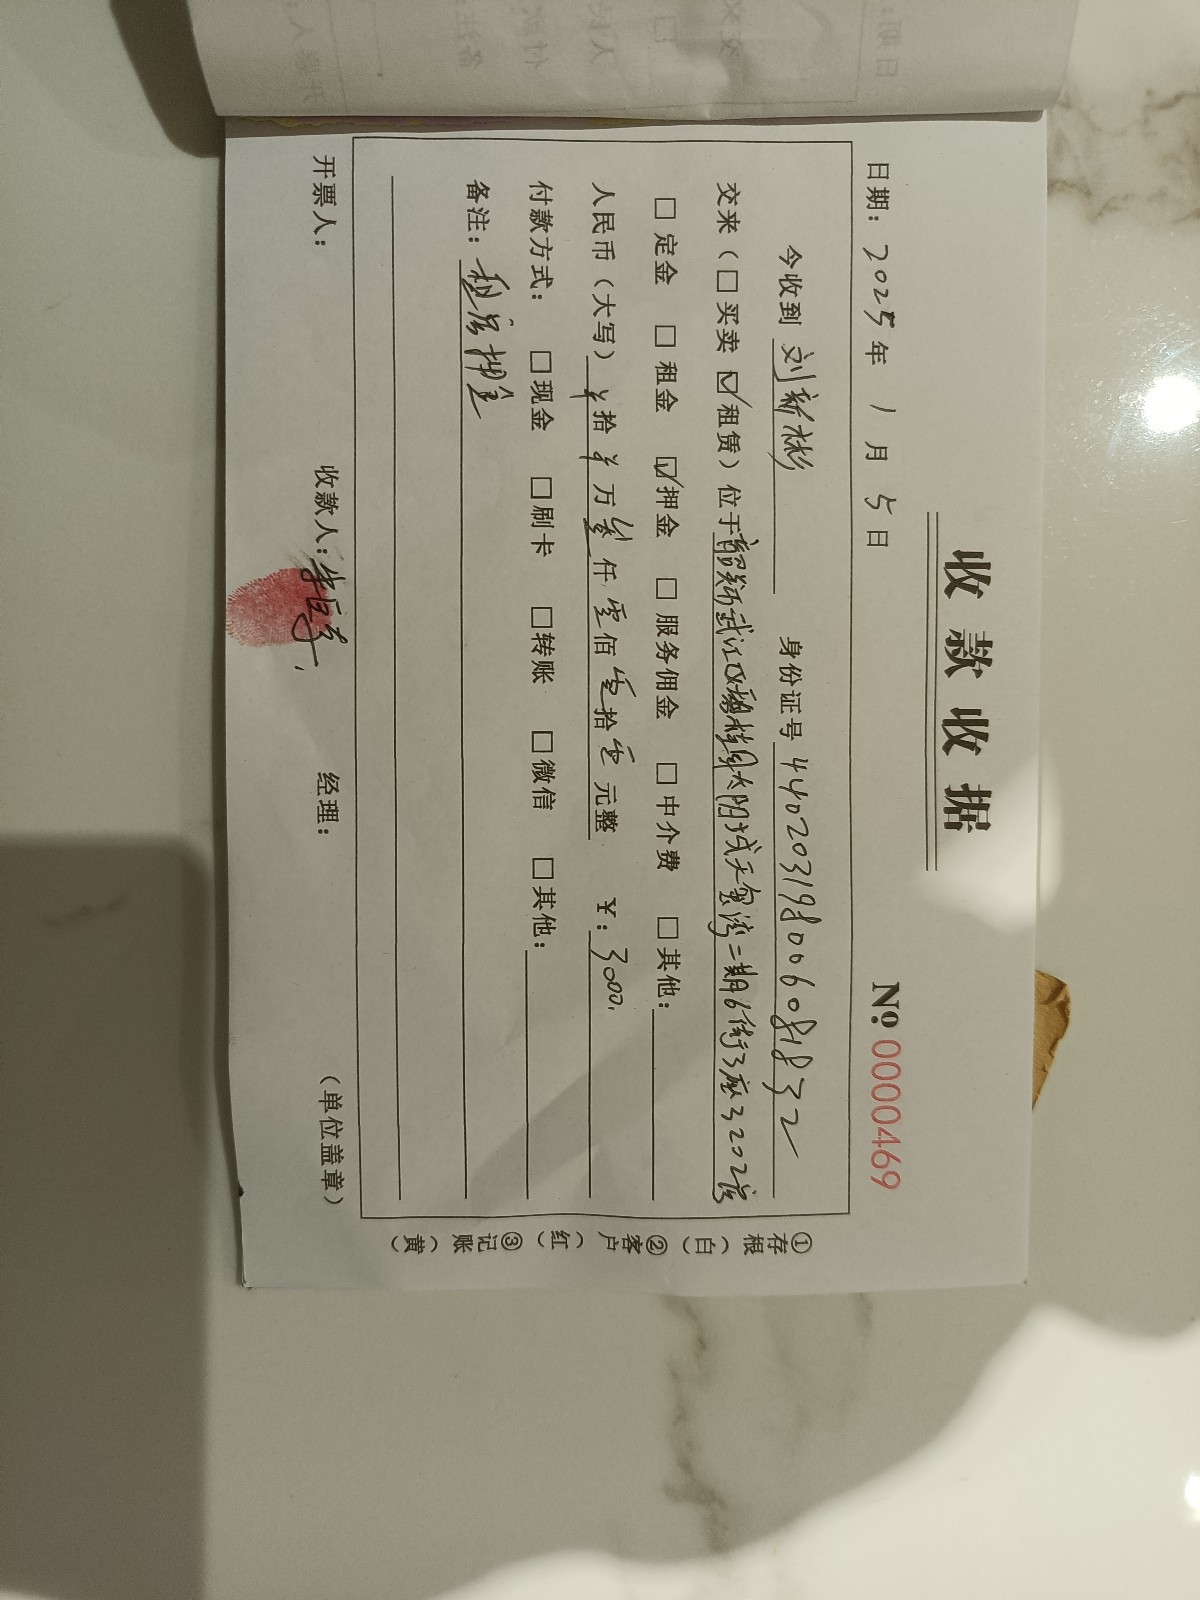 收款收据
日期：2025年 1月 5日 No. 0000469
今收到 刘新彬 身份证号 440203198006081832
交来（□买卖 ☑租赁）位于韶关市武江区碧桂园太阳城天玺湾二期6街3座3202房
□定金 □租金 ☑押金 □服务佣金 □中介费 □其他：
人民币（大写）¥拾¥万叁仟零佰零拾零元整 ¥：3000.
付款方式： □现金 □刷卡 □转账 □微信 □其他：
备注：租房押金
开票人： 收款人： 经理： （单位盖章）
①存根（白） ②客户（红） ③记账（黄）